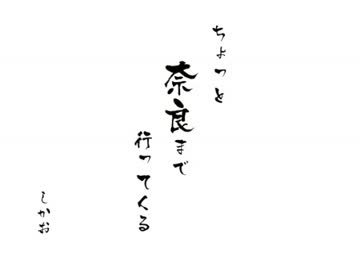 ちょっと
奈良まで
行ってくる
しかお